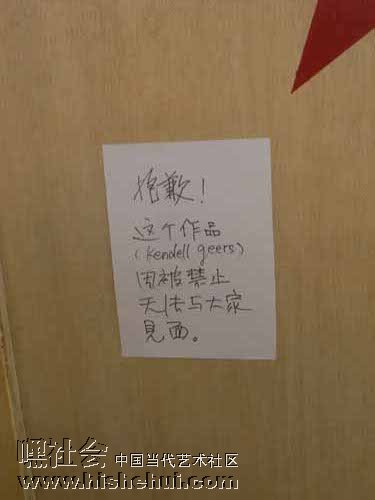 抱歉！
这个作品
(Kendell geers)
因被禁止
无法与大家
見面。
嘿社会 中国当代艺术社区
www.hishehui.com